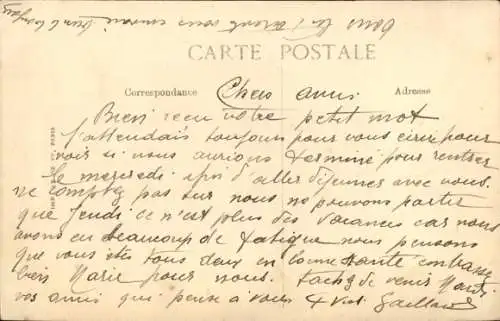 CARTE POSTALE
Correspondance
Adresse
Chers amis
Bien reçu votre petit mot
J'attendais toujours pour vous écrire pour
voir si nous aurions terminé pour rentrer
le mercredi afin d'aller déjeuner avec vous.
ne comptez pas sur nous ne pouvons partir
que Jeudi ce n'est plus des vacances car nous
avons eu beaucoup de fatigue nous pensons
que vous êtes tous deux en bonne santé embrassez
bien Marie pour nous. tachez de venir Mardi
vos amis qui pense à vous